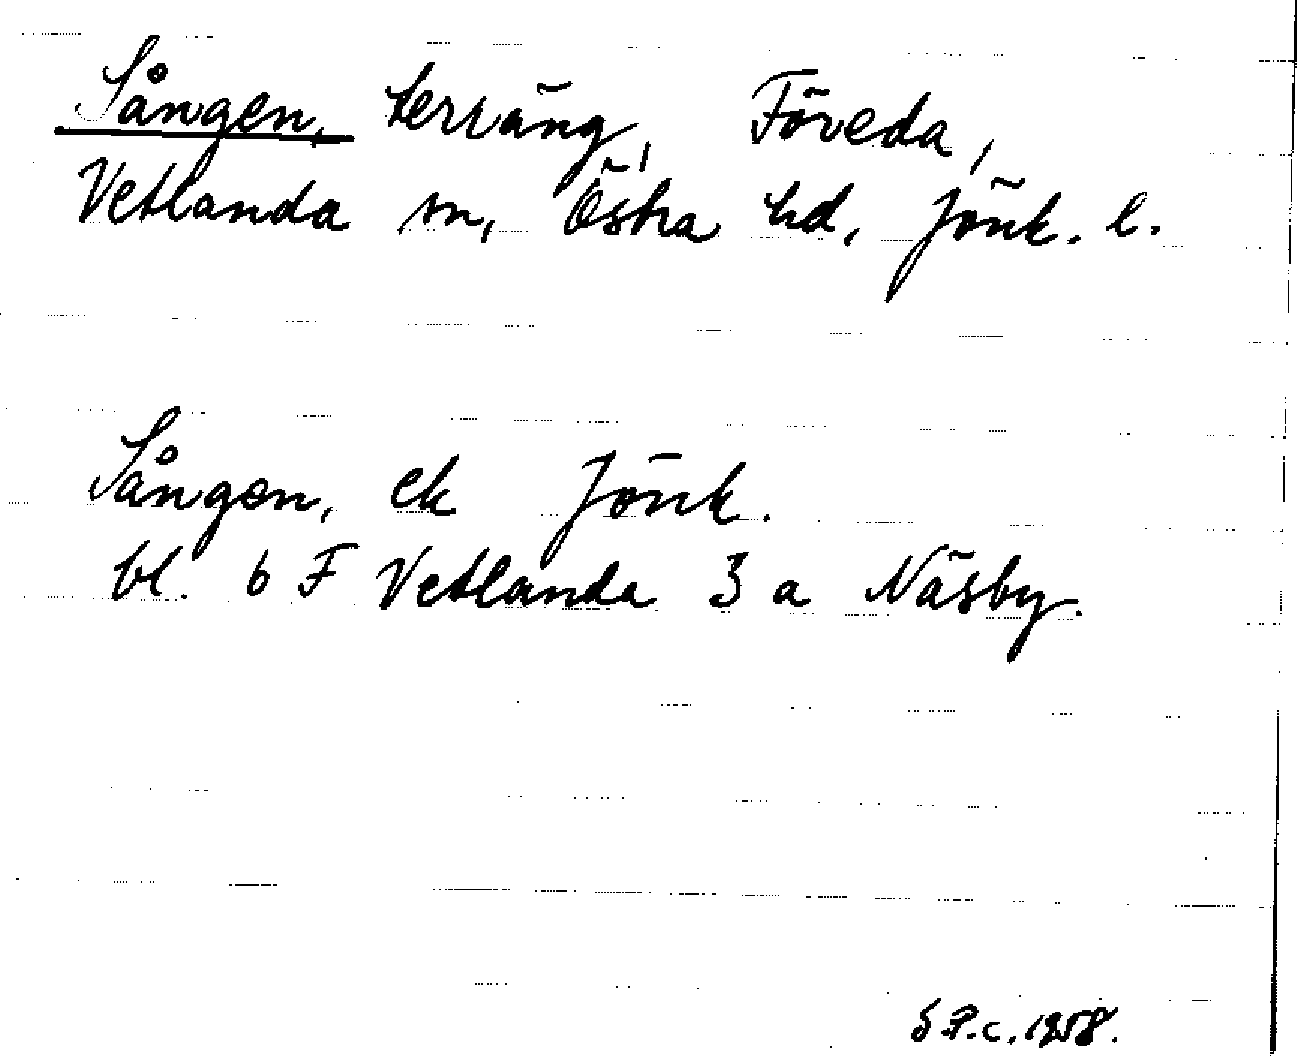 Sången, terräng, Föveda,
Vetlanda sn, Östra hd, Jönk. l.
Sången, ek Jönk.
bl. 6 F Vetlanda 3 a Näsby.
S.P.c. 1958.